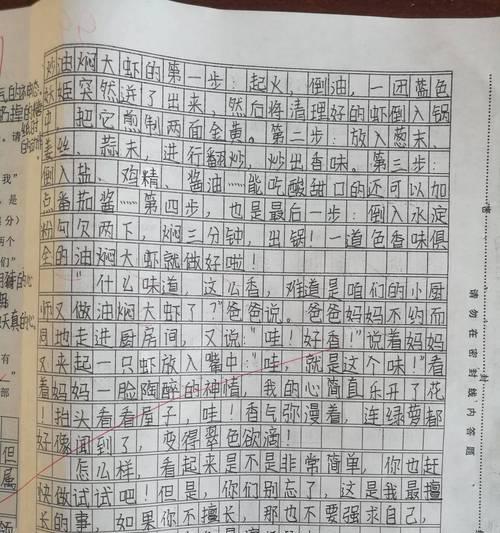 油焖大虾的第一步：起火，倒油，一团蓝色
火姬突然迸了出来，然后将清理好的虾倒入锅
中，把它煎制两面金黄。第二步：放入葱末、
姜丝、蒜末，进行翻炒，炒出香味。第三步：
倒入盐、鸡精、酱油……能吃酸甜口的还可以加
点番茄酱……第四步，也是最后一步：倒入水淀
粉勾欠两下，焖三分钟，出锅！一道色香味俱
全的油焖大虾就做好啦！
"什么味道，这么香，难道是咱们的小厨
师又做油焖大虾了？"爸爸说。爸爸妈妈不约而
同地走进厨房间，又说："哇！好香！"说着妈妈
又夹起一只虾放入嘴中："哇，就是这个味！"看
着妈妈一脸陶醉的神情，我的心简直乐开了花
！抬头看看屋子，哇！香气弥漫着，连绿萝都
好像闻到了，变得翠色欲滴！
怎么样，看起来是不是非常简单，你也赶
快做试试吧！但是，你们别忘了，这是我最擅
长的事，如果你不擅长，那也不要强求自己，
请勿在密封线内答题